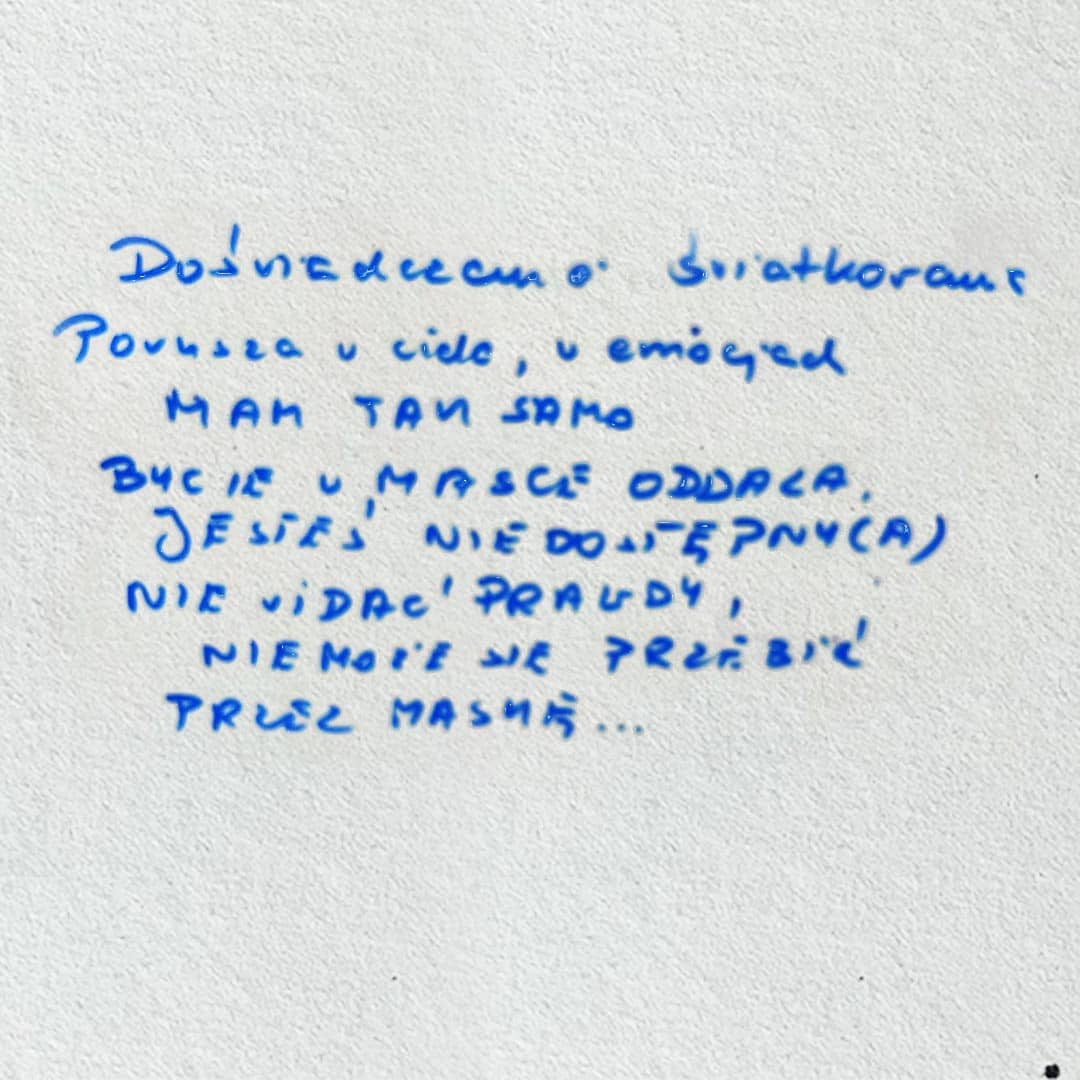 Doświadczenie świadkowanie
Porusza w ciele, w emocjach
MAM TAK SAMO
BYCIE W MASCE ODDALA.
JESTEŚ NIEDOSTĘPNY(A)
NIE WIDAĆ PRAWDY,
NIE MOŻE SIĘ PRZEBIĆ
PRZEZ MASKĘ...